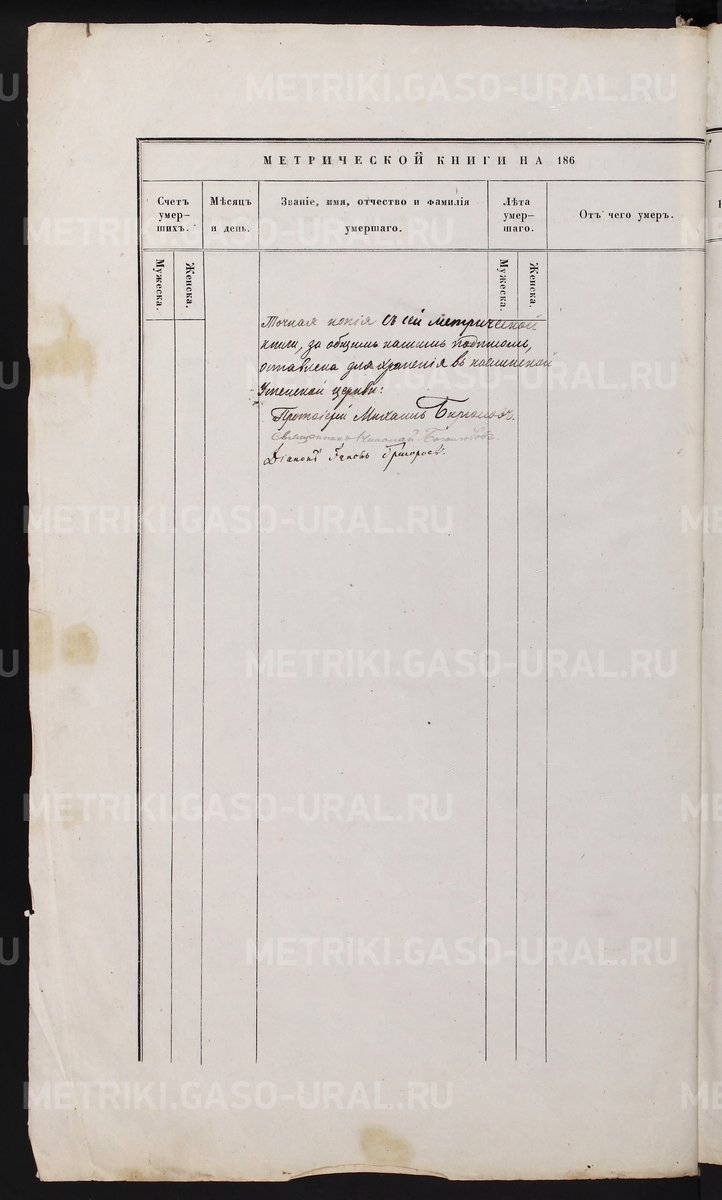 МЕТРИЧЕСКОЙ КНИГИ НА 186
Счетъ умер-шихъ.
Мѣсяцъ и день.
Званіе, имя, отчество и фамилія умершаго.
Лѣта умер-шаго.
Отъ чего умеръ.
Мужеска.
Женска.
Мужеска.
Женска.
Точная копія съ сей метрической
книги, за общимъ нашимъ подписомъ,
оставлена для храненія въ
Успенской церкви:
Протоіерей Михаилъ
Священникъ Николай
Діаконъ Яковъ
METRIKI.GASO-URAL.RU